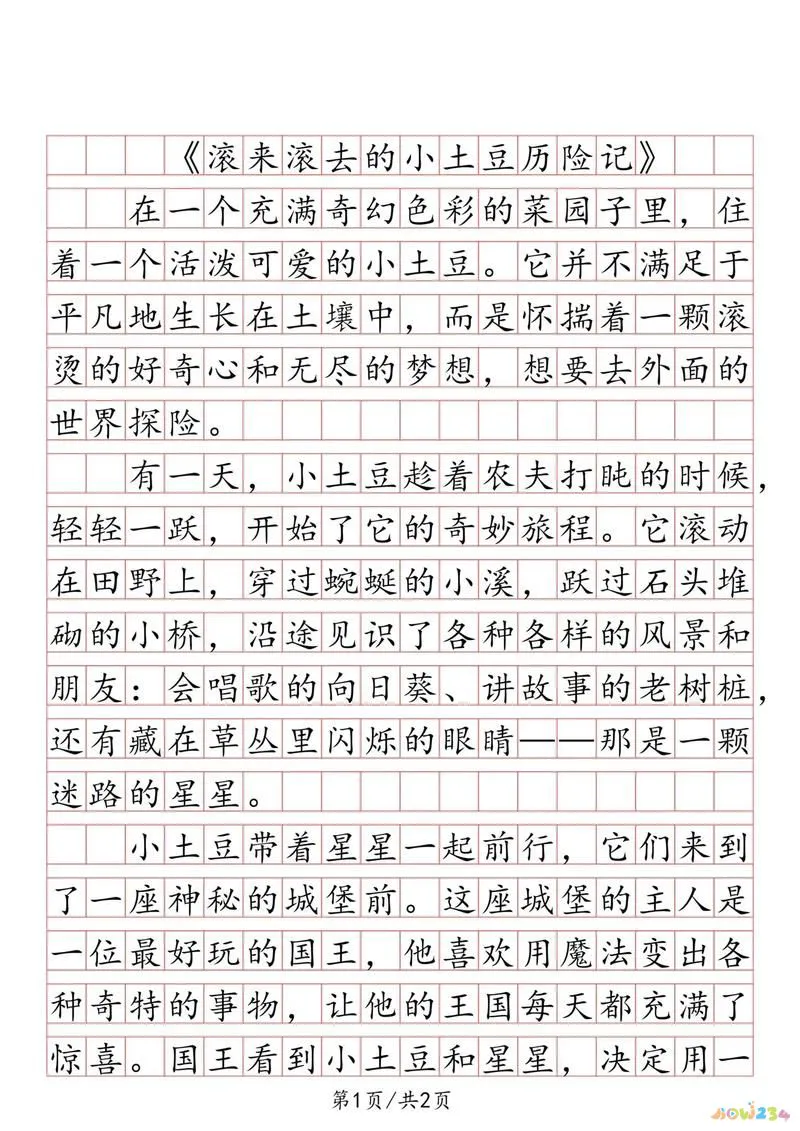 《滚来滚去的小土豆历险记》
在一个充满奇幻色彩的菜园子里，住
着一个活泼可爱的小土豆。它并不满足于
平凡地生长在土壤中，而是怀揣着一颗滚
烫的好奇心和无尽的梦想，想要去外面的
世界探险。
有一天，小土豆趁着农夫打盹的时候，
轻轻一跃，开始了它的奇妙旅程。它滚动
在田野上，穿过蜿蜒的小溪，跃过石头堆
砌的小桥，沿途见识了各种各样的风景和
朋友：会唱歌的向日葵、讲故事的老树桩，
还有藏在草丛里闪烁的眼睛——那是一颗
迷路的星星。
小土豆带着星星一起前行，它们来到
了一座神秘的城堡前。这座城堡的主人是
一位最好玩的国王，他喜欢用魔法变出各
种奇特的事物，让他的王国每天都充满了
惊喜。国王看到小土豆和星星，决定用一
第1页/共2页
HOW234